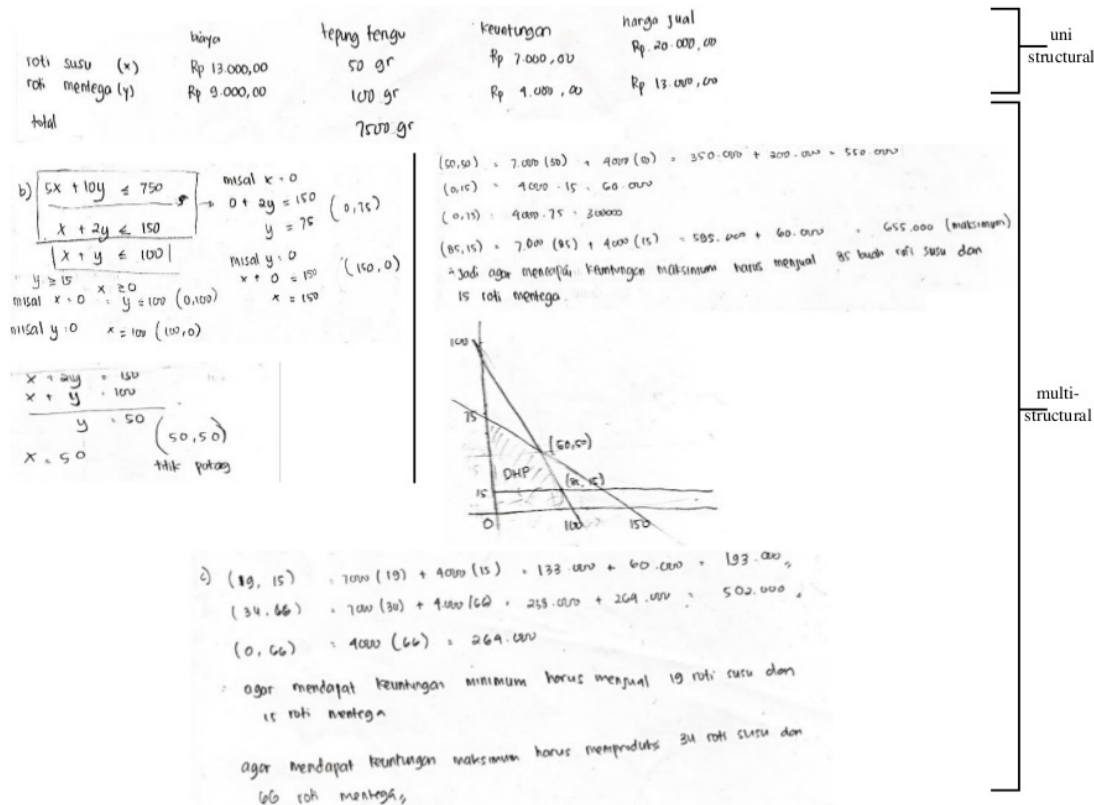 biaya tepung terigu keuntungan harga jual
roti susu (x) Rp 13.000,00 50 gr Rp 7.000,00 Rp.20.000,00
roti mentega (y) Rp 9.000,00 100 gr Rp 4.000,00 Rp 13.000,00
total 7500 gr
uni
structural
b) 5x + 10y ≤ 750
x + 2y ≤ 150
x + y ≤ 100
y ≥ 15 x ≥ 0
misal x = 0 = y = 100 (0,100)
misal y = 0 x = 100 (100,0)
misal x = 0
0 + 2y = 150 (0,75)
y = 75
misal y = 0
x + 0 = 150 (150,0)
x = 150
x + 2y = 150
x + y = 100
y = 50
x = 50 (50,50)
titik potong
(50,50) = 7.000 (50) + 4000 (50) = 350.000 + 200.000 = 550.000
(0,15) = 4000 . 15 = 60.000
(0,75) = 4000 . 75 = 300000
(85,15) = 7.000 (85) + 4000 (15) = 595.000 + 60.000 = 655.000 (maksimum)
∴ Jadi agar mencapai keuntungan maksimum harus menjual 85 buah roti susu dan
15 roti mentega.
100
75
(50,50)
DHP
(85,15)
15
0 100 150
multi-
structural
c) (19, 15) = 7000 (19) + 4000 (15) = 133.000 + 60.000 = 193.000
(34,66) = 7000 (34) + 4000 (66) = 238.000 + 264.000 = 502.000
(0,66) = 4000 (66) = 264.000
∴ agar mendapat keuntungan minimum harus menjual 19 roti susu dan
15 roti mentega
agar mendapat keuntungan maksimum harus memproduks 34 roti susu dan
66 roti mentega